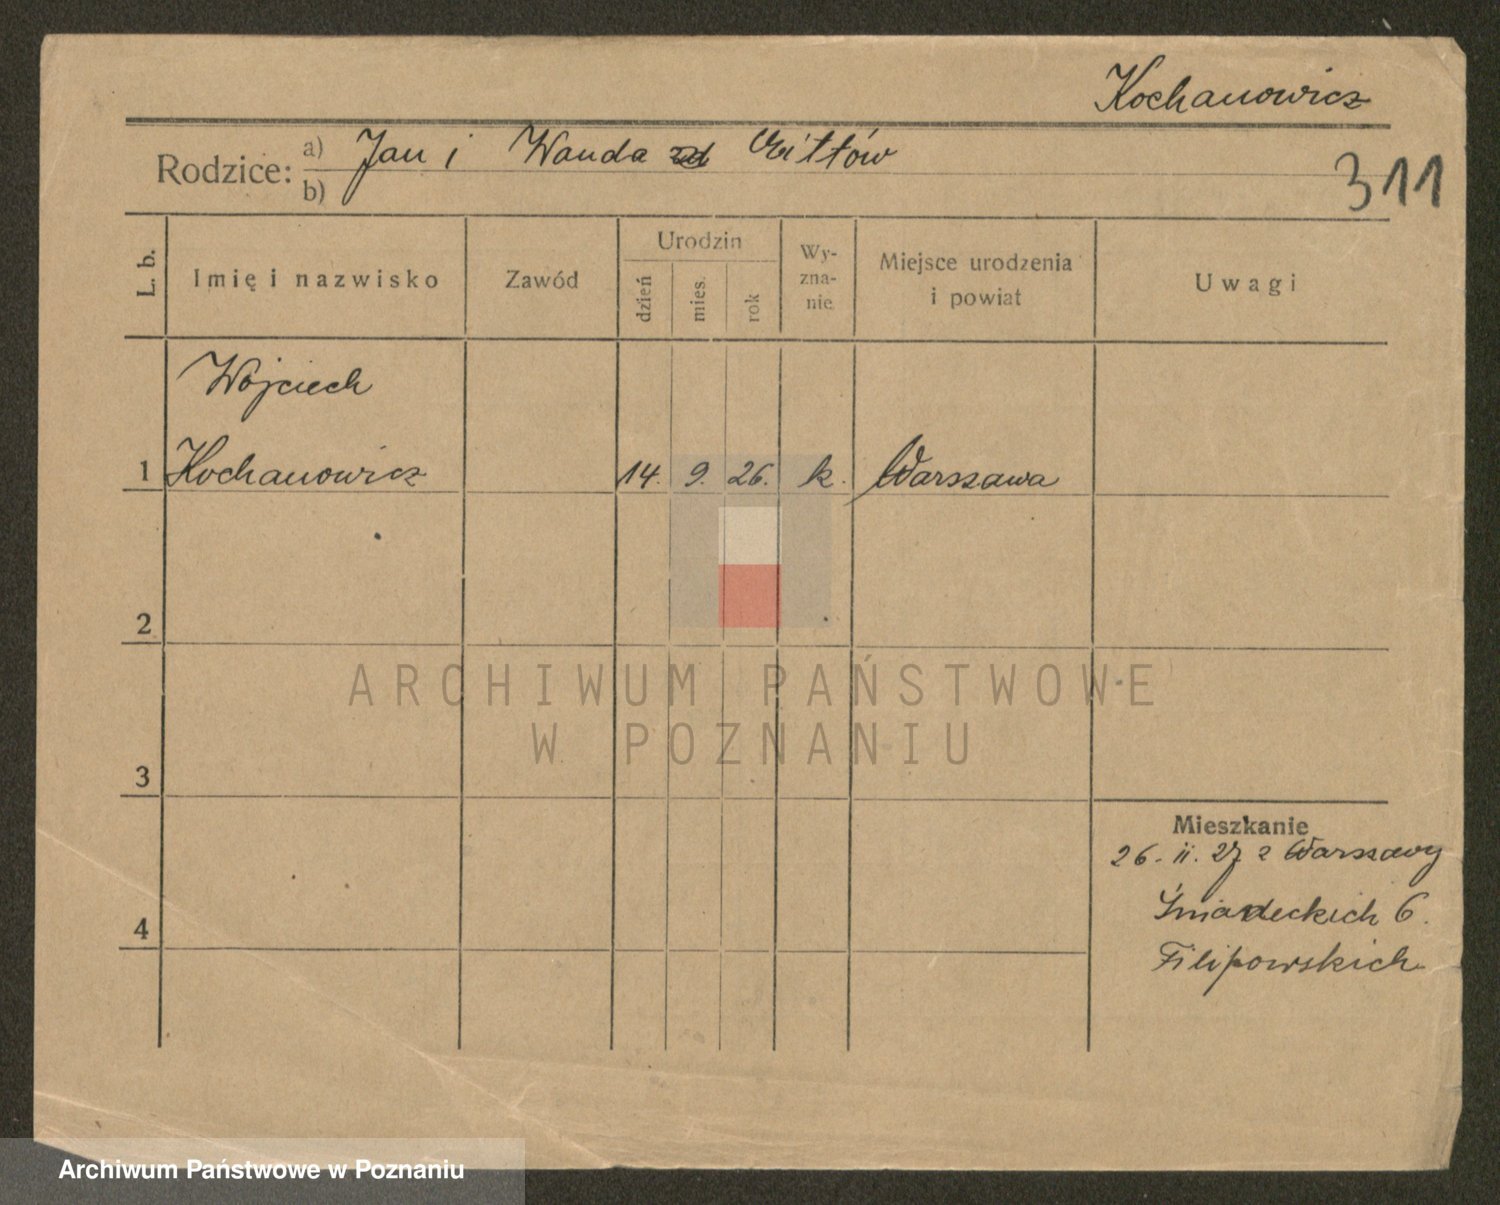 Kochanowicz
Rodzice: a) Jan i Wanda
b)
311
L. b.
Imię i nazwisko
Zawód
Urodzin
dzień
mies.
rok
Wy-
zna-
nie
Miejsce urodzenia
i powiat
Uwagi
Wojciech
1 Kochanowicz 14. 9. 26. k. Warszawa
2
ARCHIWUM PAŃSTWOWE
W POZNANIU
3
Mieszkanie
26. II. 27 z Warszawy
Śniadeckich 6.
4
Filipowskich
Archiwum Państwowe w Poznaniu